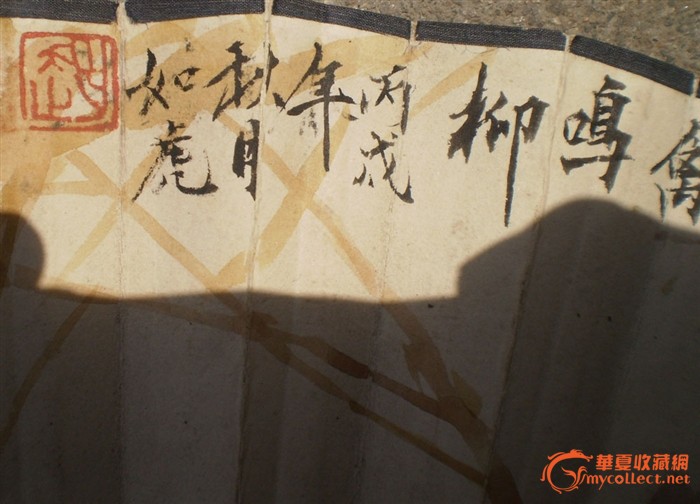 鳴
柳
丙戌
年
秋月
如虎
華夏收藏網
mycollect.net